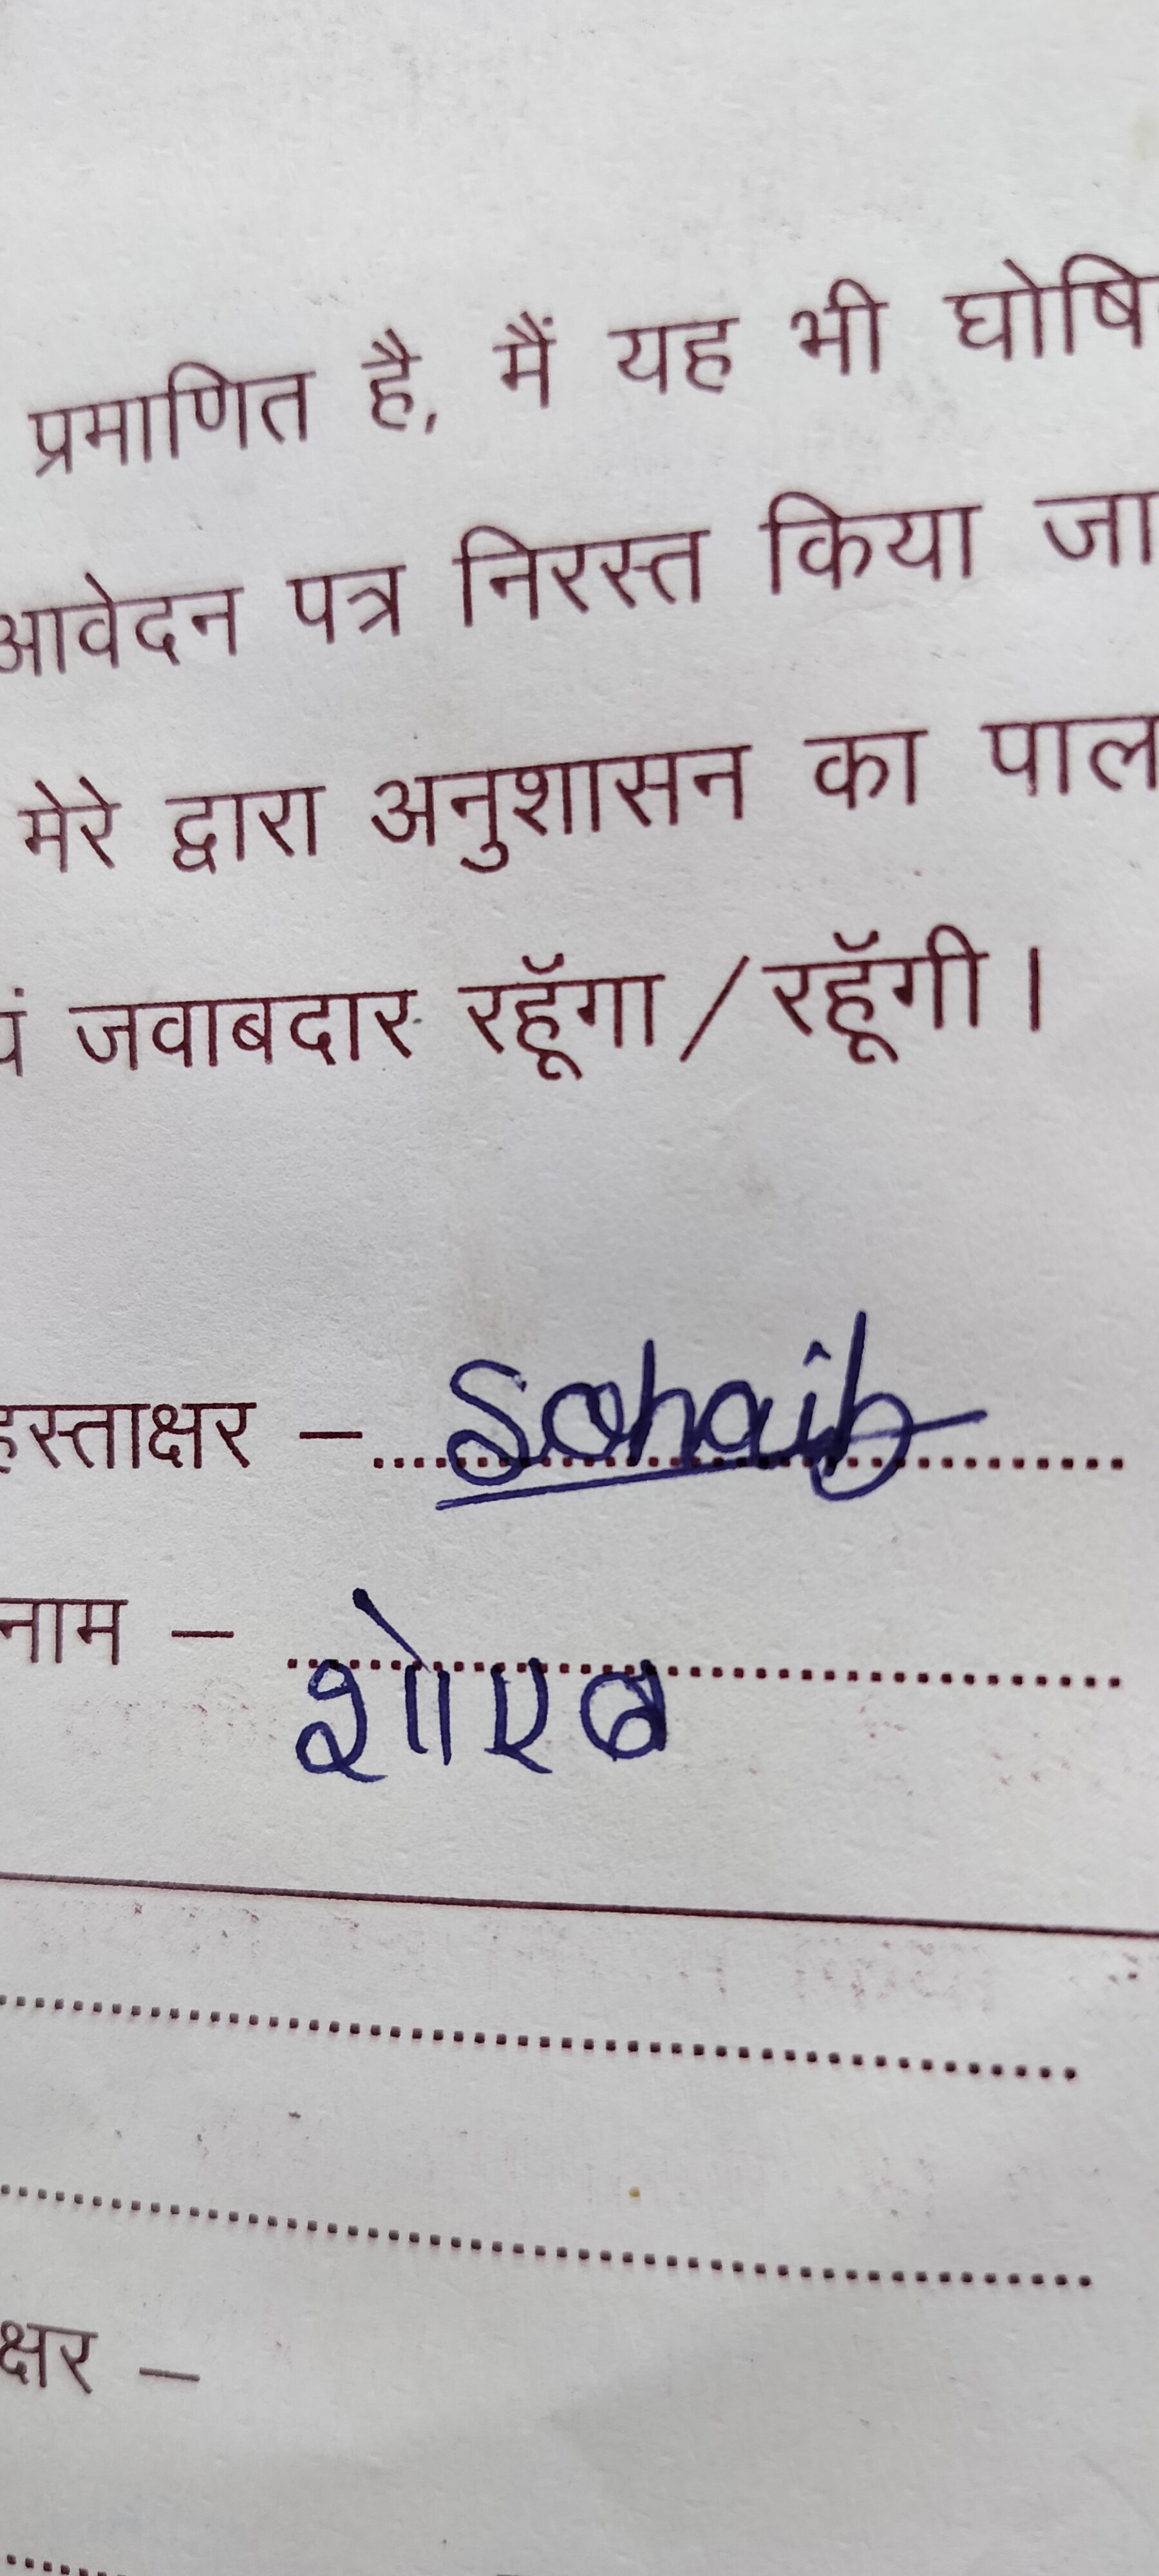 प्रमाणित है, मैं यह भी घोषि
आवेदन पत्र निरस्त किया जा
मेरे द्वारा अनुशासन का पाल
यं जवाबदार रहूॅगा / रहूॅगी ।
हस्ताक्षर – Sohaib
नाम – शोएब
क्षर –